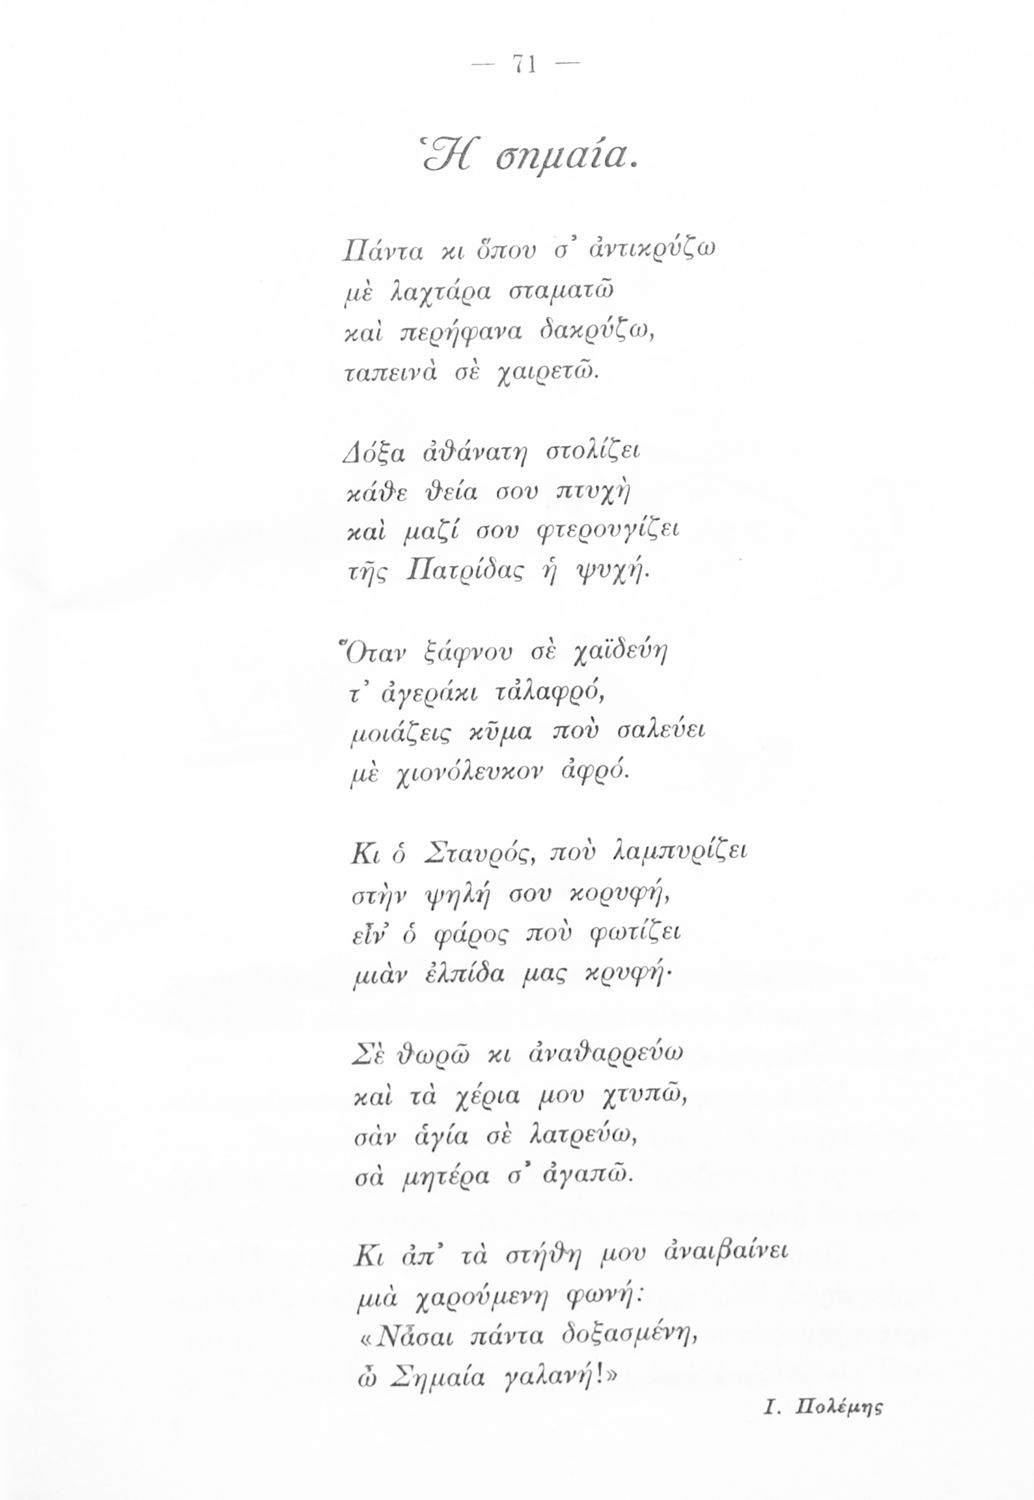 — 71 —
Ἡ σημαία.
Πάντα κι ὅπου σ’ ἀντικρύζω
μὲ λαχτάρα σταματῶ
καὶ περήφανα δακρύζω,
ταπεινὰ σὲ χαιρετῶ.
Δόξα ἀθάνατη στολίζει
κάθε θεία σου πτυχὴ
καὶ μαζί σου φτερουγίζει
τῆς Πατρίδας ἡ ψυχή.
Ὅταν ξάφνου σὲ χαϊδεύη
τ’ ἀγεράκι τἀλαφρό,
μοιάζεις κῦμα ποὺ σαλεύει
μὲ χιονόλευκον ἀφρό.
Κι ὁ Σταυρός, ποὺ λαμπυρίζει
στὴν ψηλή σου κορυφή,
εἶν’ ὁ φάρος ποὺ φωτίζει
μιὰν ἐλπίδα μας κρυφή·
Σὲ θωρῶ κι ἀναθαρρεύω
καὶ τὰ χέρια μου χτυπῶ,
σὰν ἁγία σὲ λατρεύω,
σὰ μητέρα σ’ ἀγαπῶ.
Κι ἀπ’ τὰ στήθη μου ἀναιβαίνει
μιὰ χαρούμενη φωνή:
«Νἆσαι πάντα δοξασμένη,
ὦ Σημαία γαλανή!»
Ι. Πολέμης